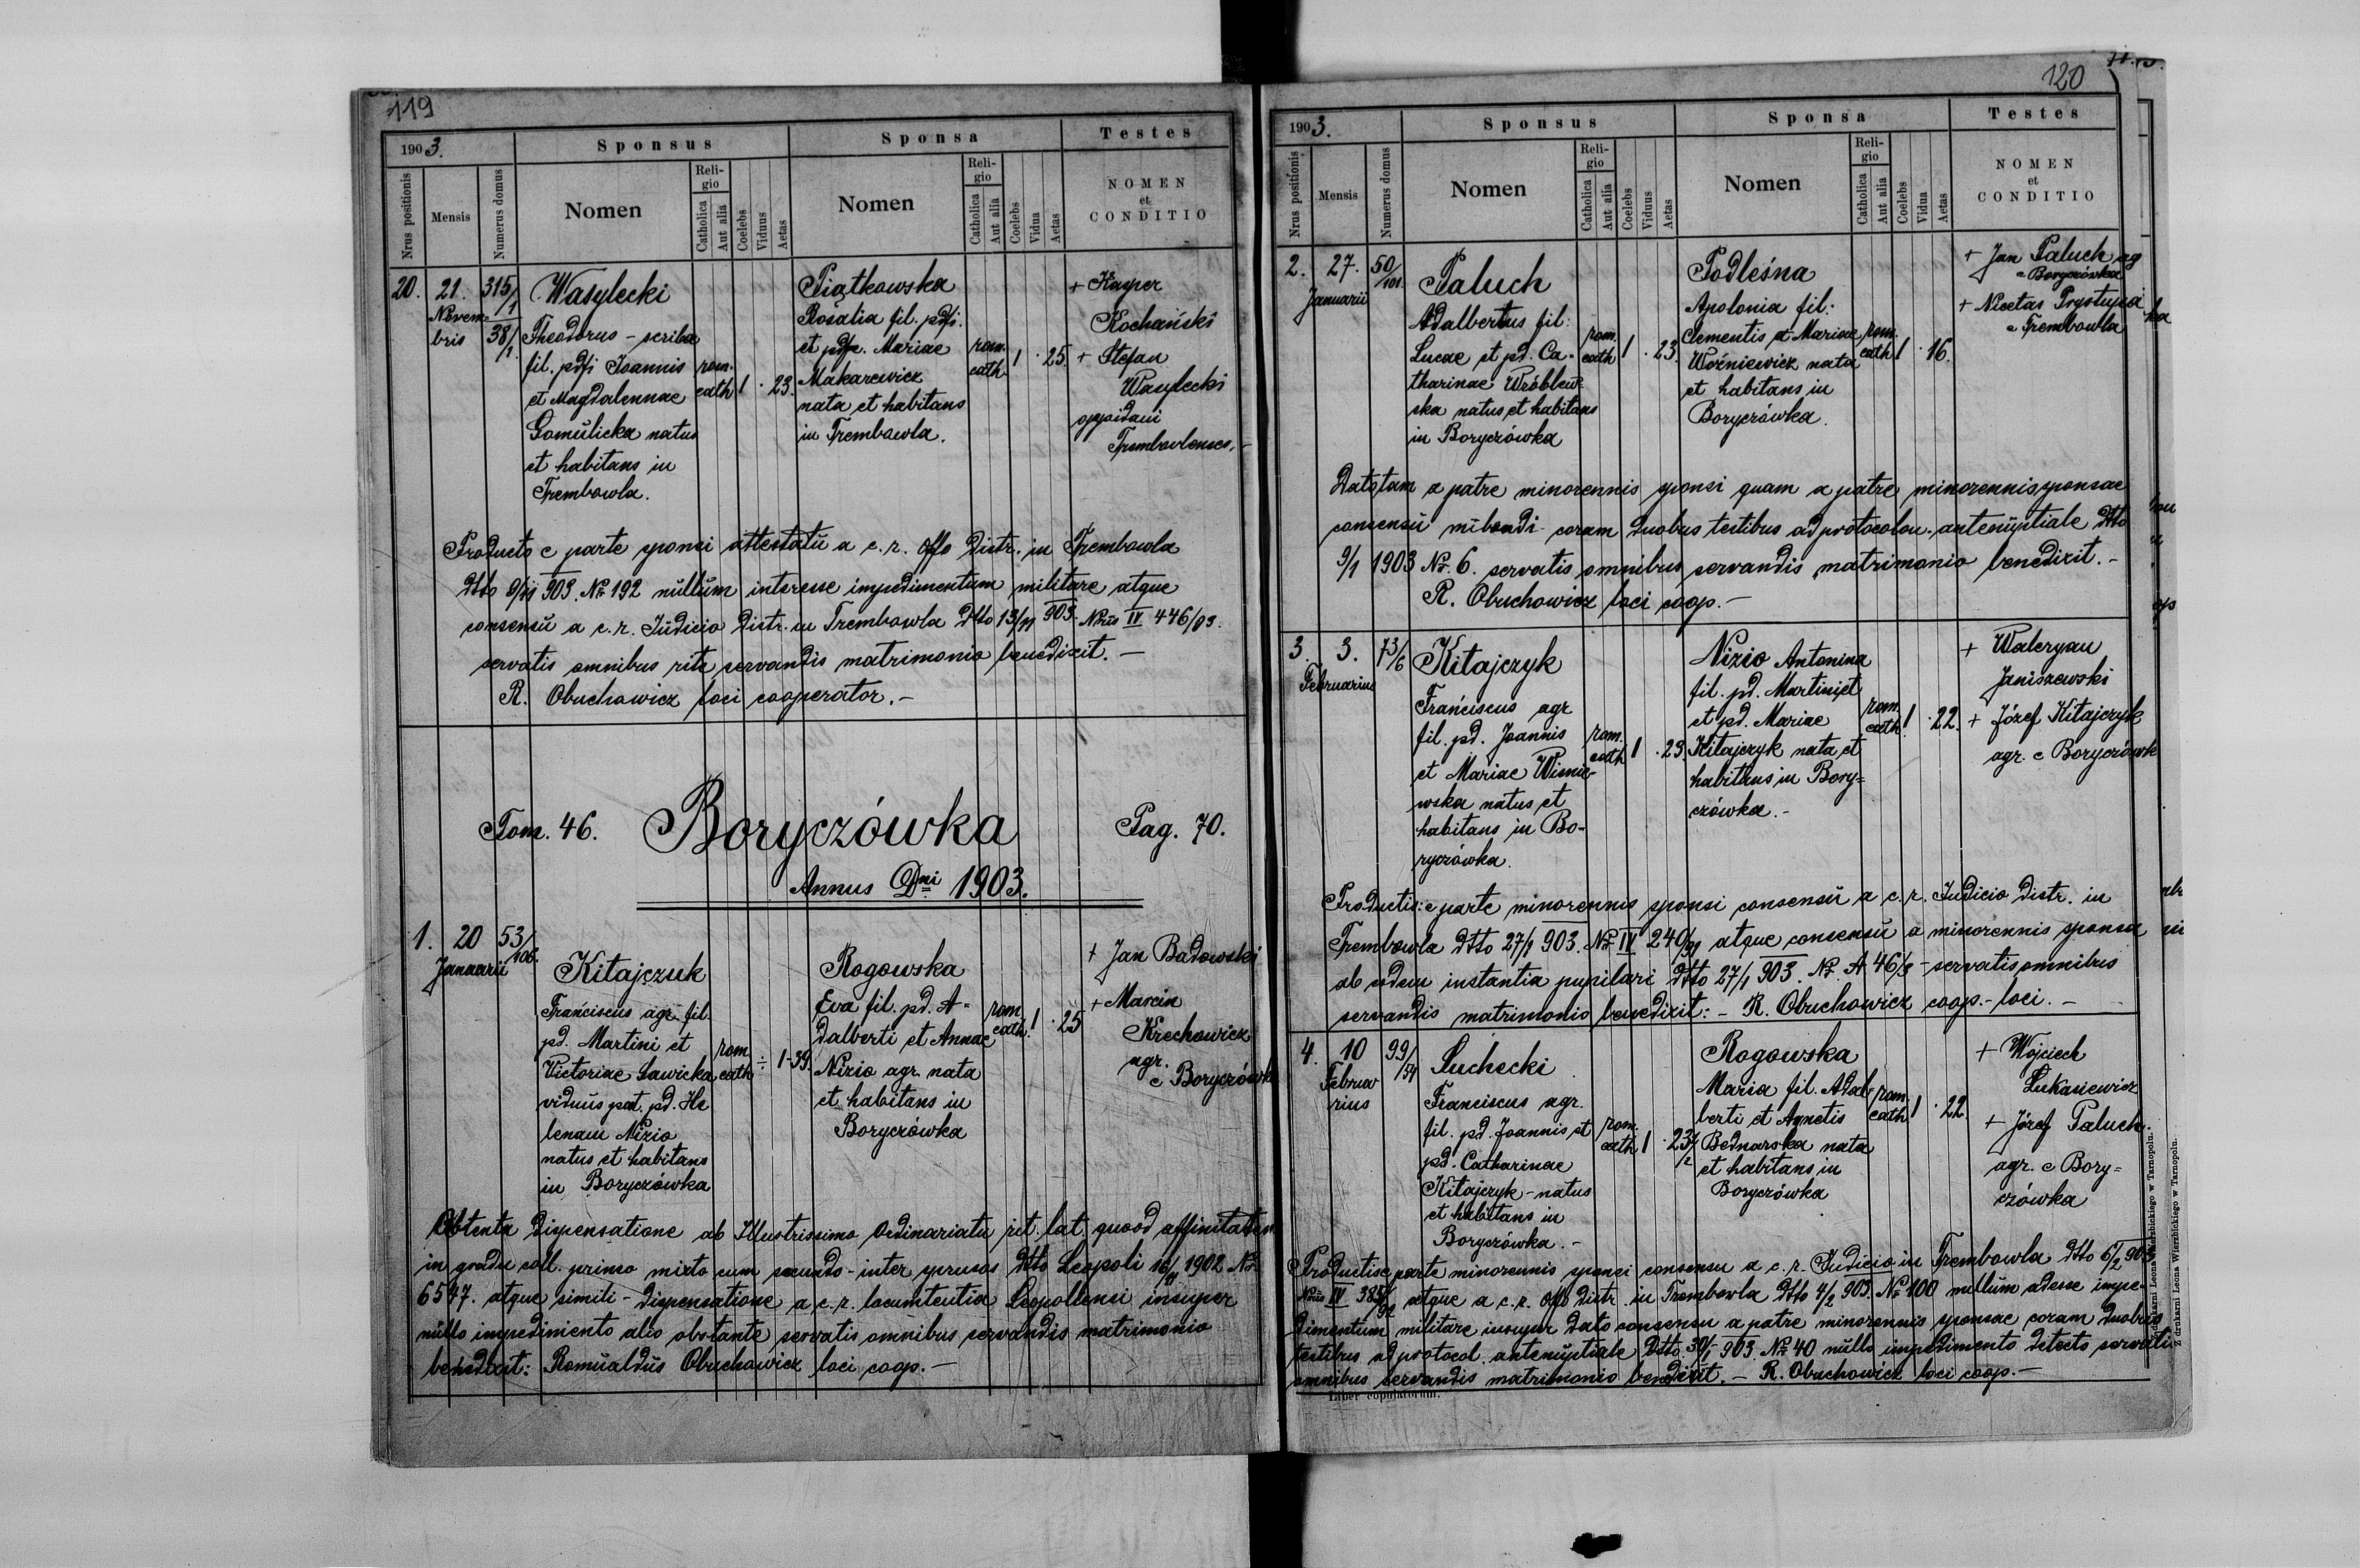 119
1903.
Sponsus
Sponsa
Testes
Nrus positionis
Mensis
Numerus domus
Nomen
Religio
Catholica
Aut alia
Coelebs
Viduus
Aetas
Nomen
Religio
Catholica
Aut alia
Coelebs
Vidua
Aetas
NOMEN
et
CONDITIO
20. 21. Novembris 315/1 38/1
Wasylecki
Theodorus - scriba
fil. pdfi Joannis
et Magdalennae
Gomulicka natus
et habitans in
Trembowla.
rom. cath 1 . 23.
Piątkowska
Rosalia fil. pdfi.
et pdfe. Mariae
Makarewicz
nata et habitans
in Trembowla.
rom. cath. 1 . 25.
+ Kasper
Kochański
+ Stefan
Wasylecki
oppidani
Trembovlenses. -
Producto e parte sponsi attestatu a c. r. Offo Distr. in Trembowla
Dtto 9/11 903. No 192 nullum interesse impedimentum militare atque
consensu a c. r. Judicio Distr. in Trembowla Dtto 13/11 903. Nrus IV 446/03.
servatis omnibus rite servandis matrimonio benedixit. -
R. Obuchowicz loci cooperator. -
Tom. 46. Boryczówka Pag. 70.
Annus Dni 1903.
1. 20 Januarii 53/106.
Kitajczuk
Franciscus agr. fil.
pd. Martini et
Victoriae Sawicka
viduus post. pd. He
lenam Nizio
natus et habitans
in Boryczówka
rom cath ÷ 1-39.
Rogowska
Eva fil. pd. A=
dalberti et Annae
Nizio agr. nata
et habitans in
Boryczówka
rom cath. 1 . 25
+ Jan Badowski
+ Marcin
Krechowicz
agr.
e Boryczówka
Obtenta Dispensatione ab Illustrissimo Ordinariatu rit. lat. quoad affinitatem
in gradu coll. primo mixto cum secundo - inter sponsos Dtto Leopoli 16/11 1902 No
6547. atque simili - Dispensatione a c. r. locumtentia Leopoliensi insuper
nullo impedimento alio obstante servatis omnibus servandis matrimonio
benedixit: Romualdus Obuchowicz loci coop. -
120
1903.
Sponsus
Sponsa
Testes
Nrus positionis
Mensis
Numerus domus
Nomen
Religio
Catholica
Aut alia
Coelebs
Viduus
Aetas
Nomen
Religio
Catholica
Aut alia
Coelebs
Vidua
Aetas
NOMEN
et
CONDITIO
2. 27. Januarii 50/101.
Paluch
Adalbertus fil:
Lucae et pd. Ca-
tharinae Wróblew-
ska natus et habitans
in Boryczówka
rom. cath 1 . 23.
Podleśna
Apolonia fil:
Clementis et Mariae
Woźniewicz nata
et habitans in
Boryczówka.
rom. cath 1 . 16.
+ Jan Paluch ag
e Boryczówka
+ Nicetas Prystupa
e Trembowla
Dato tam a patre minorennis sponsi quam a patre minorennis sponsae
consensu nubendi coram duobus testibus ad protocolon. antenuptiale Dtto
9/1 1903 No. 6. servatis omnibus servandis matrimonio benedixit. -
R. Obuchowicz loci coop. -
3 3. Februarius 73/6
Kitajczyk
Franciscus agr
fil. pd. Joannis
et Mariae Wisnie-
wska natus et
habitans in Bo-
ryczówka.
rom. cath 1 . 23.
Nizio Antonina
fil. pd. Martini et
et pd. Mariae
Kitajczyk nata et
habitans in Bory=
czówka. -
rom. cath 1 . 22.
+ Waleryan
Janiszewski
+ Józef Kitajczyk
agr. e Boryczówk
Productis: e parte minorennis sponsi consensu a c. r. Judicio Distr. in
Trembowla Dtto 27/1 903. No IV 240/91 atque consensu a minorennis sponsa
ab eodem instantia pupilari Dtto 27/1 903. No. A 46/3 - servatis omnibus
servandis matrimonio benedixit: - R. Obuchowicz coop. - loci. -
4. 10 Februarius 99/54
Suchecki
Franciscus agr.
fil. pd. Joannis et
pd. Catharinae
Kitajczyk - natus
et habitans in
Boryczówka. -
rom. cath 1 . 23 1/2
Rogowska
Maria fil. Adal-
berti et Agnetis
Bednarska nata
et habitans in
Boryczówka
rom cath 1 . 22
+ Wojciech
Łukasiewicz
+ Józef Paluch.
agr. e Bory=
czówka
Productis e parte minorennis sponsi consensu a c. r. Judicio in Trembowla Dtto 6/2 903
Nrus IV 385/92 atque a c. r. Offo Distr. in Trembowla Dtto 4/2 903. No 100 nullum adesse impe-
dimentum militare insuper dato consensu a patre minorennis sponsae coram duobus
testibus ad protocol. antenuptiale Dtto 30/1 903. No 40 nullo impedimento detecto servatis
omnibus servandis matrimonio benedixit. - R. Obuchowicz loci coop. -
Liber copulatorum.
Z drukarni Leona Wierzbickiego w Tarnopolu.
Z drukarni Leona Wierzbickiego w Tarnopolu.